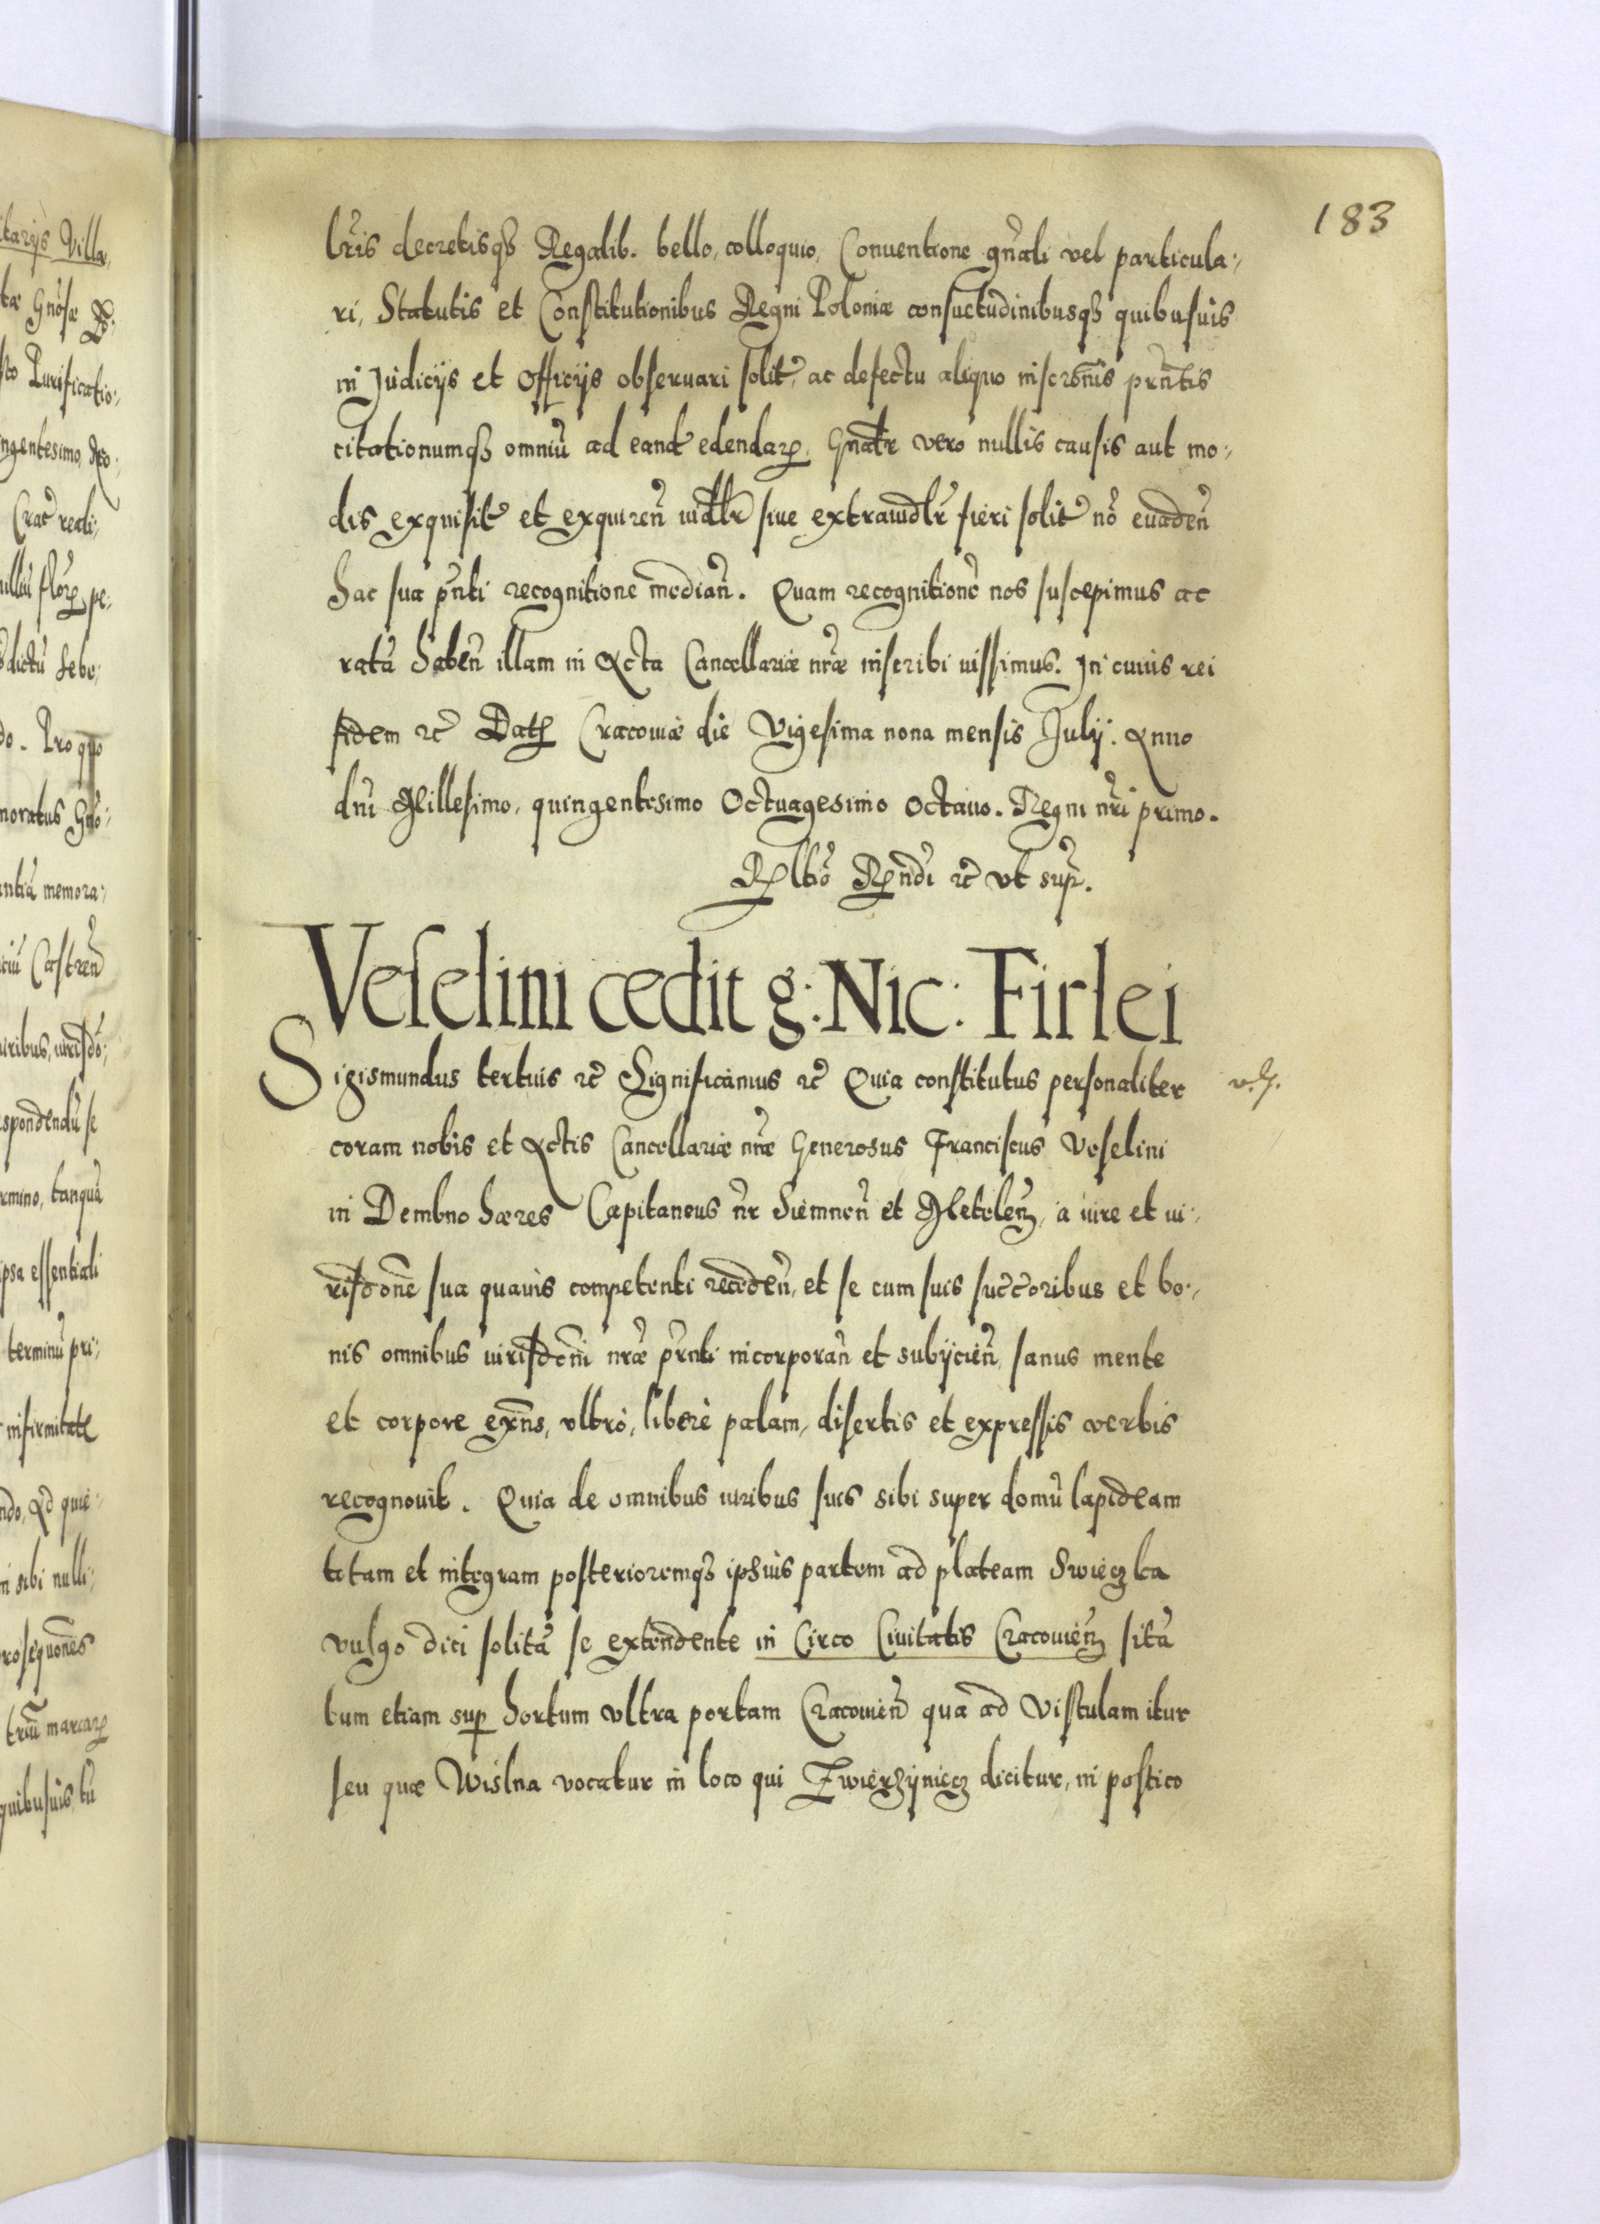 183
lr̃is decretisq₃ Regalib. bello, colloquio, Conuentione gñali vel particula:
ri, Statutis et Constitutionibus Regni Poloniæ consuetudinibusq₃ quibusuis
in Judicijs et Officijs obseruari solit̃, ac defectu aliquo inscrõnis prñtis
citationumq₃ omniũ ad eand̃ edendaꝝ. Gñalr̃ vero nullis causis aut mo:
dis exquisit̃ et exquireñ iudlr̃ siue extraiudlr̃ fieri solit̃ nõ euadeñ
hac sua pñti recognitione mediañ. Quam recognitionẽ nos suscepimus ac
ratã habeñ illam in Acta Cancellariæ nr̃æ inscribi iussimus. In cuius rei
fidem &c̃ Datꝭ Cracouiæ die Vigesima nona mensis Julij. Anno
dni Millesimo, quingentesimo Octuagesimo Octauo. Regni nr̃i primo.
Rltiõ Rñdi &c̃ vt supꝛ.
Veselini cedit g: Nic: Firlei
Sigismundus tertuis &c̃ Significamus &c̃ Quia constitutus personaliter
coram nobis et Actis Cancellariæ nr̃æ Generosus Franciscus Veselini
in Dembno hæres Capitaneus nr̃ Siemneñ et Meteleñ, a iure et iu:
risdõne sua quauis competenti recedeñ, et se cum suis succ̃oribus et bo:
nis omnibus iurisdõni nr̃æ prñti incorporañ et subijcieñ, sanus mente
et corpore exñs, vltrò, liberè palam, disertis et expressis verbis
recognouit. Quia de omnibus iuribus suis sibi super domũ lapideam
totam et integram posterioremq₃ ipsius partem ad plateam Swieczka
vulgo dici solitã se extendente in Circo Ciuitatis Cracouieñ sitã
tum etiam suꝑ hortum vltra portam Cracouieñ qua ad Vistulam itur
seu quæ Wislna vocatur in loco qui Zwierzÿniecz dicitur, in postico